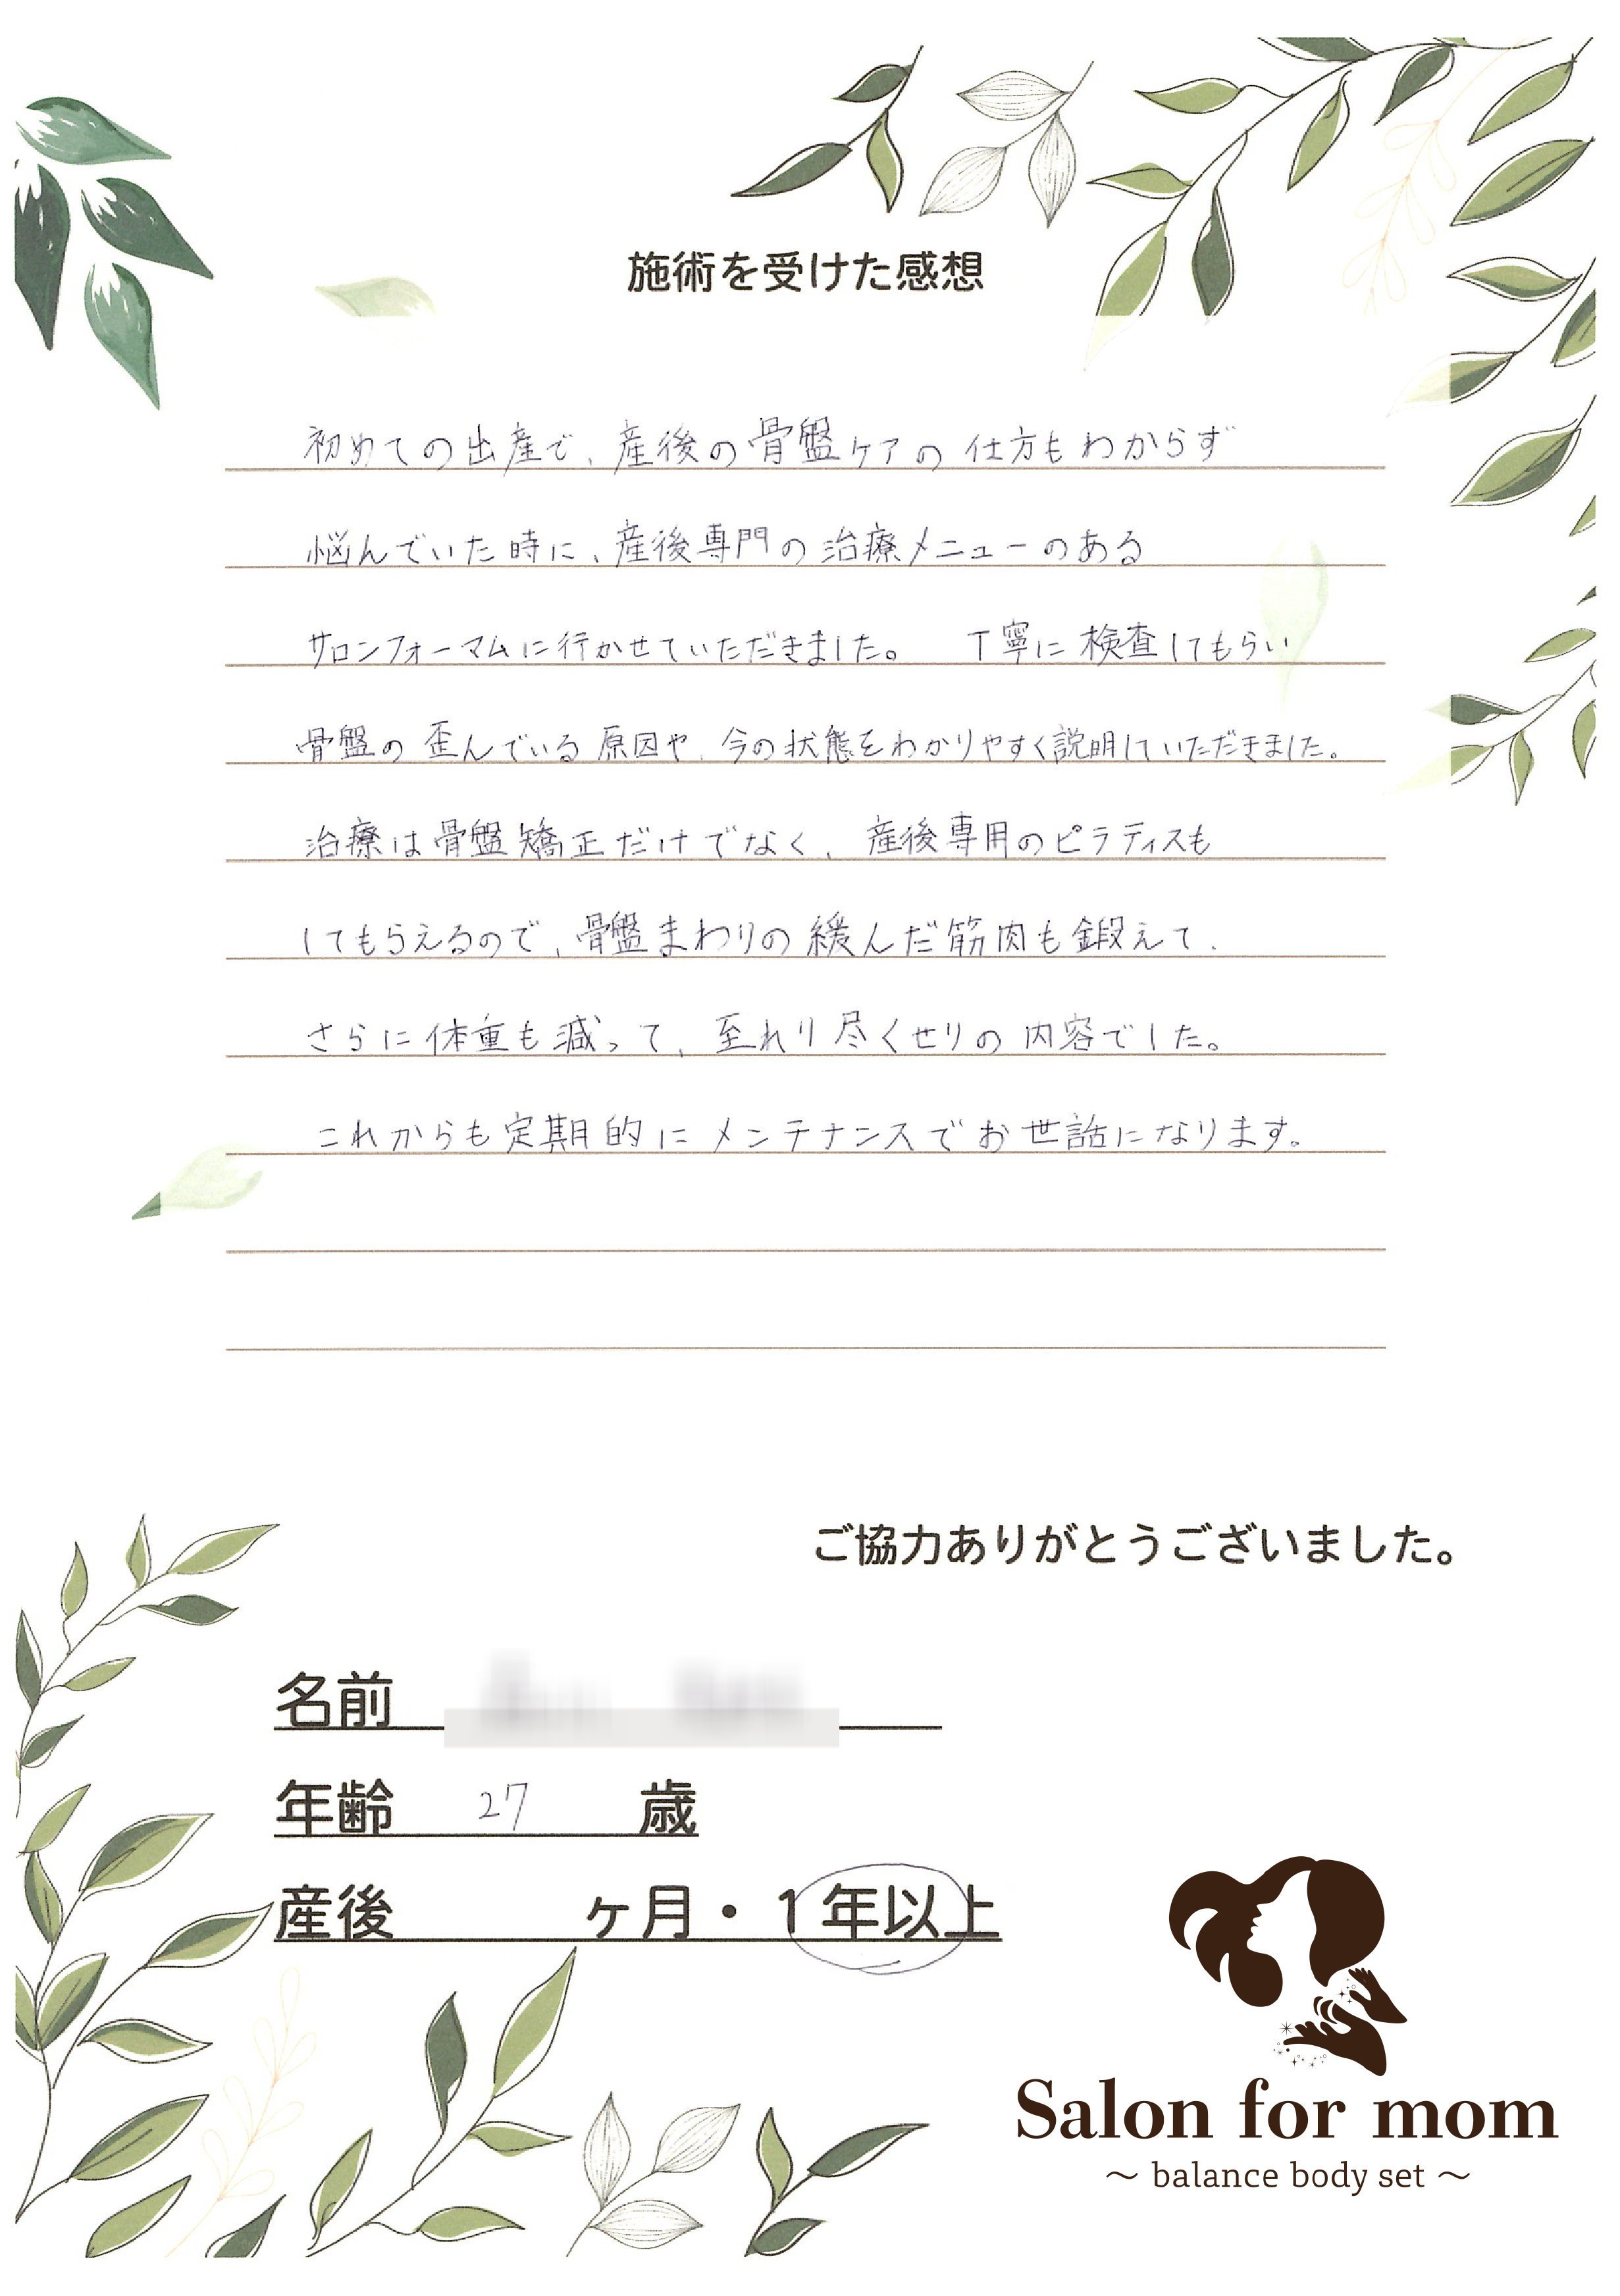 施術を受けた感想
初めての出産で、産後の骨盤ケアの仕方もわからず
悩んでいた時に、産後専門の治療メニューのある
サロンフォーマムに行かせていただきました。 丁寧に検査してもらい
骨盤の歪んでいる原因や、今の状態をわかりやすく説明していただきました。
治療は骨盤矯正だけでなく、産後専用のピラティスも
してもらえるので、骨盤まわりの緩んだ筋肉も鍛えて、
さらに体重も減って、至れり尽くせりの内容でした。
これからも定期的にメンテナンスでお世話になります。
ご協力ありがとうございました。
名前
年齢 27 歳
産後 ヶ月・1年以上
Salon for mom
～ balance body set ～